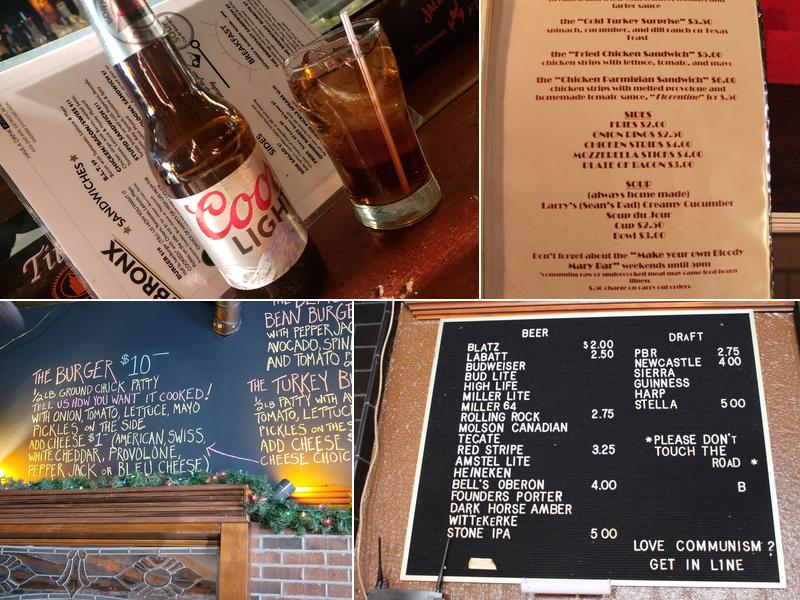 Coors
LIGHT
BREAKFAST
SIDES
SANDWICHES
BRONX
BURGER $10
B.L.T.
tarter sauce
the "Cold Turkey Surprise" $5.50
spinach, cucumber, and dill ranch on Texas
Toast
the "Fried Chicken Sandwich" $5.00
chicken strips with lettuce, tomato, and mayo
the "Chicken Parmigian Sandwich" $6.00
chicken strips with melted provolone and
homemade tomato sauce, "Florentine" for $.50
SIDES
FRIES $2.00
ONION RINGS $2.50
CHICKEN STRIPS $4.00
MOZZERELLA STICKS $4.00
PLATE OF BACON $3.00
SOUP
(always home made)
Larry's (Sean's Dad) Creamy Cucumber
Soup du Jour
Cup $2.50
Bowl $3.00
Don't forget about the "Make your own Bloody
Mary Bar" weekends until 5pm
*consuming raw or undercooked meat may cause food bourn
illness
$.50 charge on carry out orders
THE BURGER $10—
1/2 LB GROUND CHUCK PATTY
TELL US HOW YOU WANT IT COOKED!
WITH ONION, TOMATO, LETTUCE, MAYO
PICKLES ON THE SIDE
ADD CHEESE $1— (AMERICAN, SWISS,
WHITE CHEDDAR, PROVOLONE,
PEPPER JACK OR BLEU CHEESE)
BEAN BURGE
WITH PEPPER JAC
AVOCADO, SPIN
AND TOMATO P
THE TURKEY B
1/2 LB PATTY WITH AV
TOMATO, LETTUC
PICKLES ON THE
ADD CHEESE $
CHEESE CHOIC
BEER
BLATZ $2.00
LABATT 2.50
BUDWEISER
BUD LITE
HIGH LIFE
MILLER LITE
MILLER 64
ROLLING ROCK 2.75
MOLSON CANADIAN
TECATE
RED STRIPE 3.25
AMSTEL LITE
HEINEKEN
BELL'S OBERON 4.00
FOUNDERS PORTER
DARK HORSE AMBER
WITTEKERKE
STONE IPA 5 00
DRAFT
PBR 2.75
NEWCASTLE 4 00
SIERRA
GUINNESS
HARP
STELLA 5 00
*PLEASE DON'T
TOUCH THE
ROAD *
B
LOVE COMMUNISM?
GET IN LINE